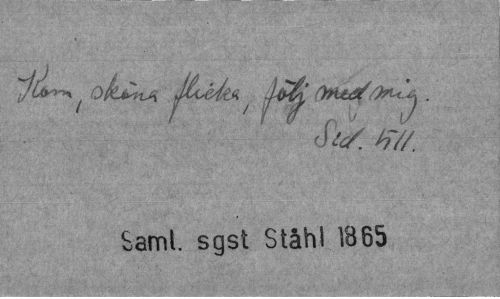 Kom, sköna flicka, följ med mig.
Sid. 511.
Saml. sgst Ståhl 1865